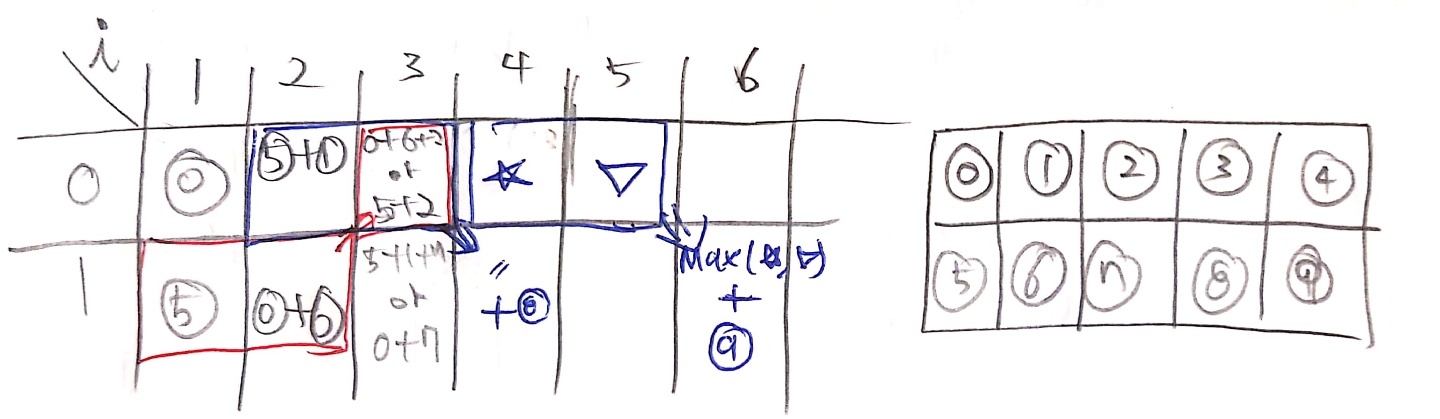 i 1 2 3 4 5 6
0 ⓪ ⑤+① 0+6+2 ☆ ▽
or
5+2
1 ⑤ ⓪+⑥ 5+1+7 〃 Max(☆,▽)
or +⑧ +
0+7 ⑨
⓪ ① ② ③ ④
⑤ ⑥ ⑦ ⑧ ⑨